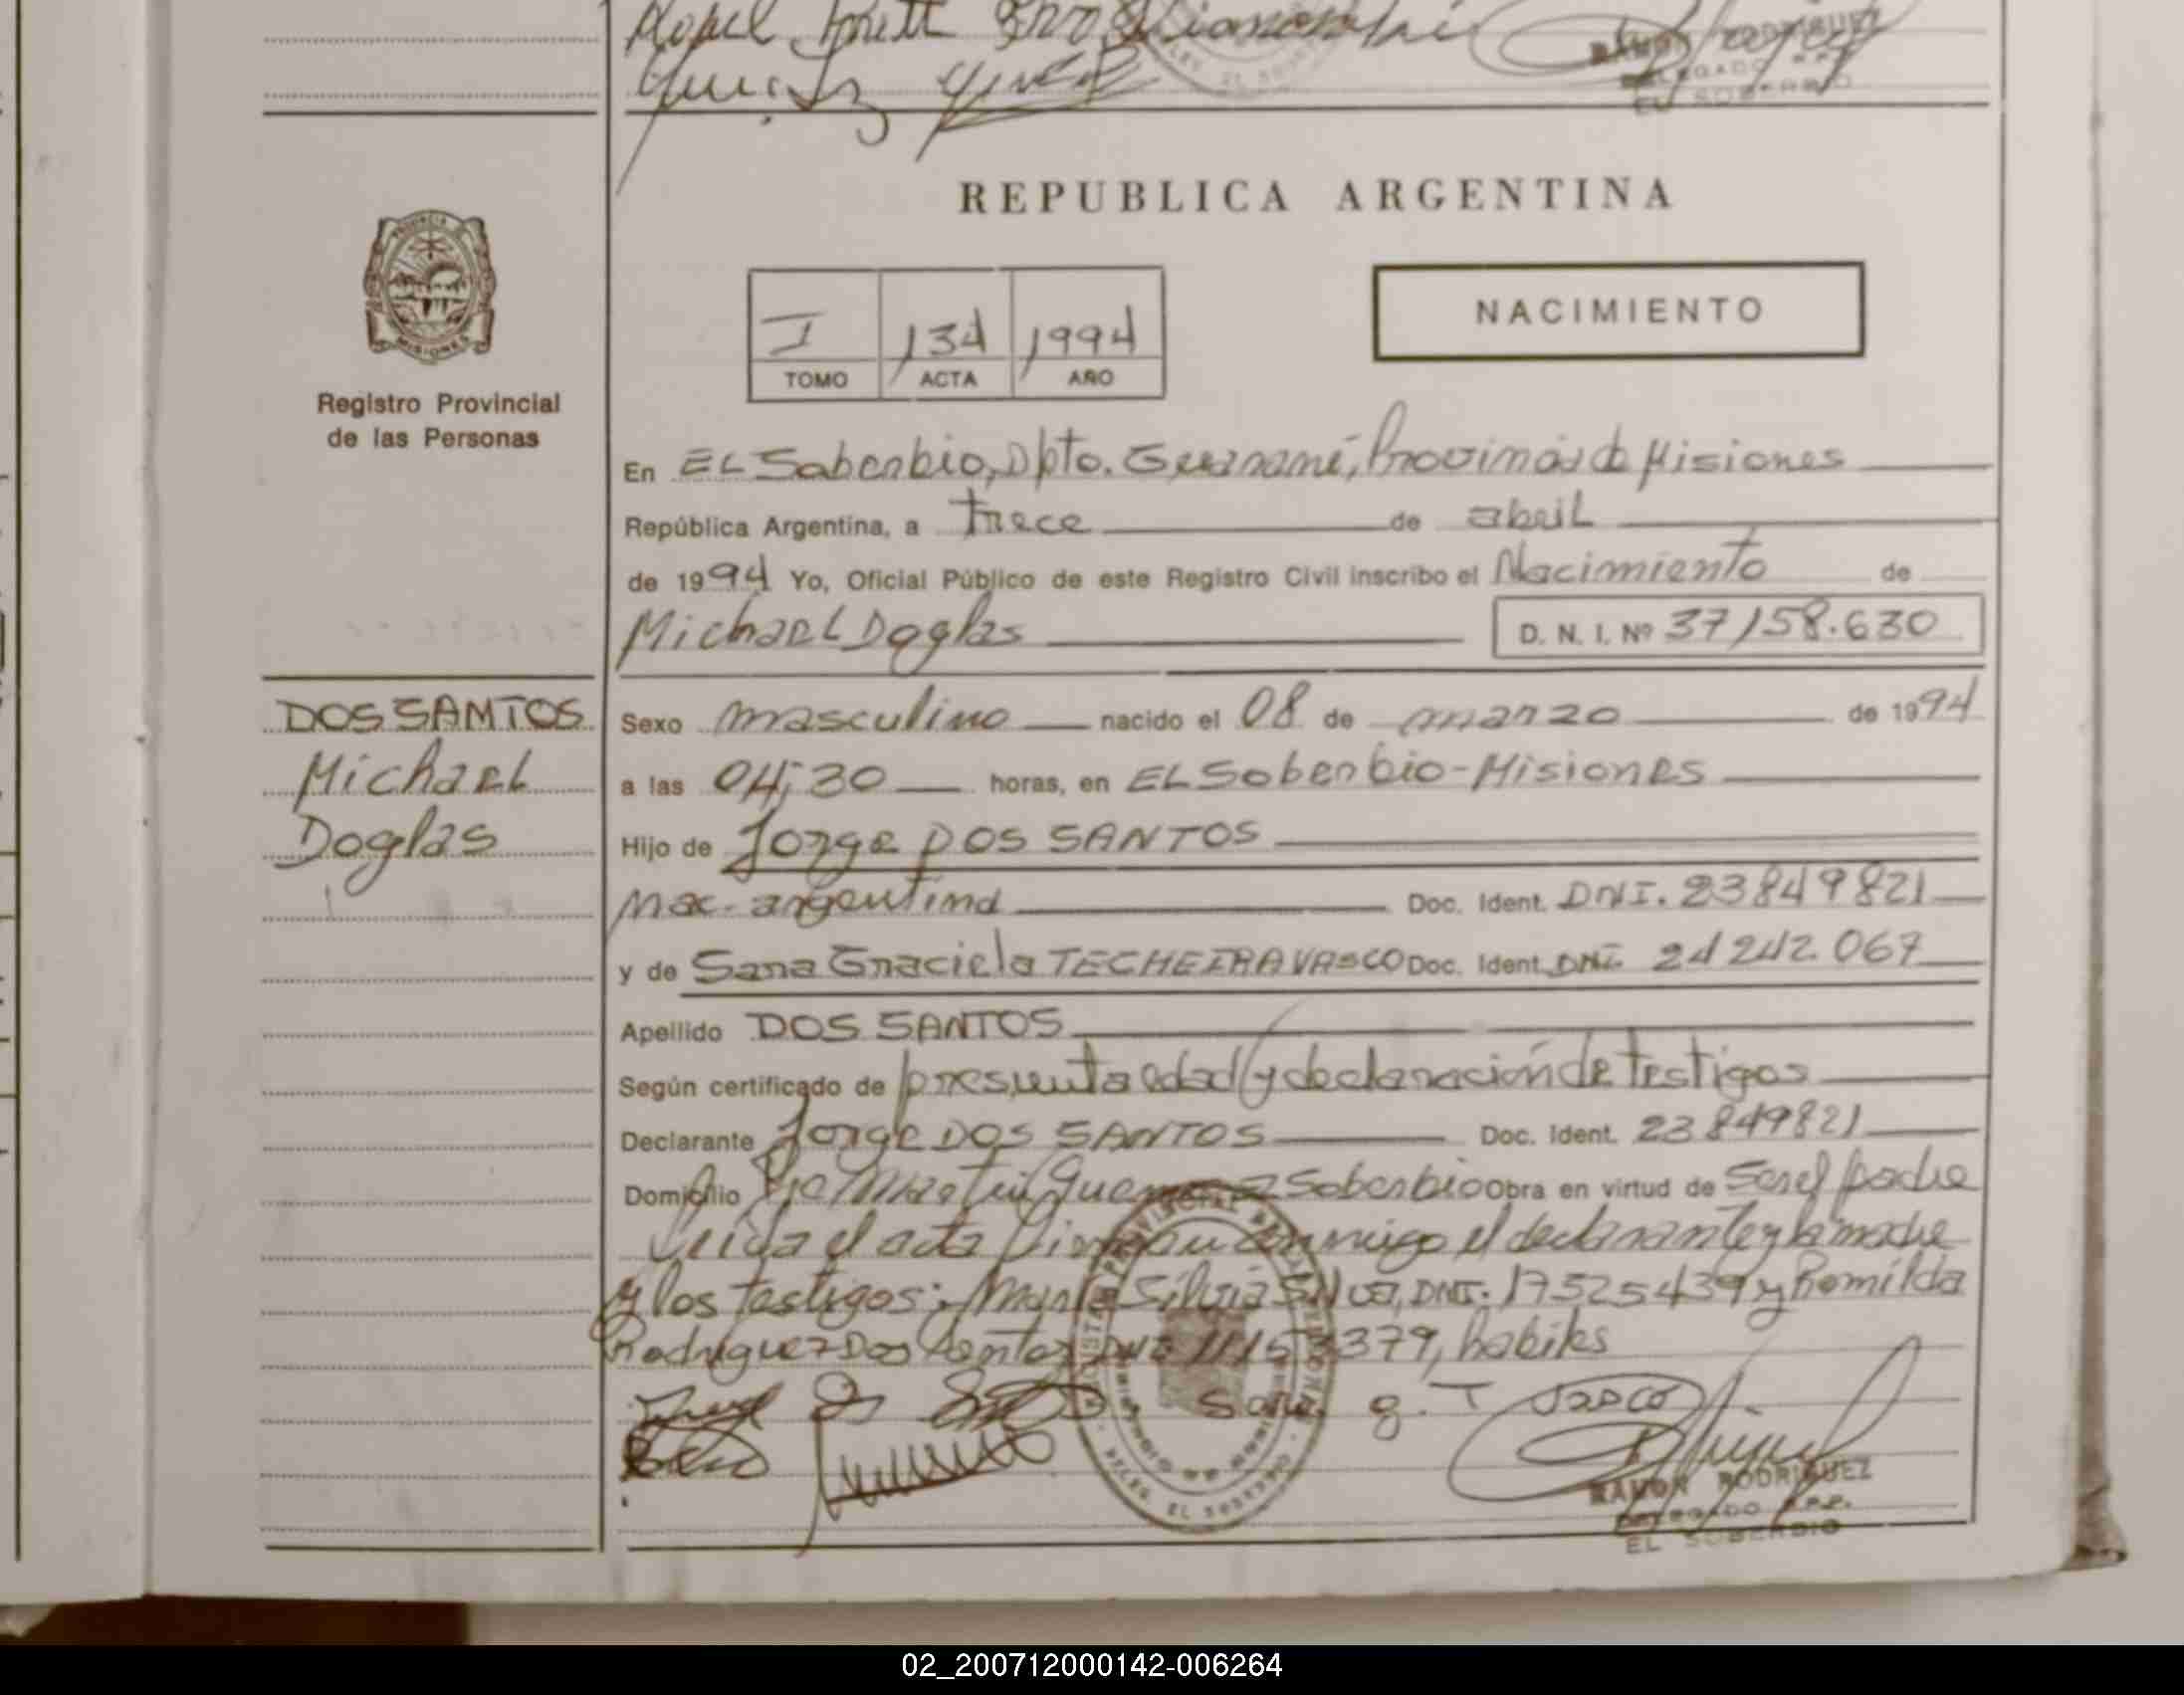 RAMON RODRIGUEZ
DELEGADO R.P.P.
EL SOBERBIO
REPUBLICA ARGENTINA
PROVINCIA DE
MISIONES
Registro Provincial
de las Personas
I 134 1994
TOMO ACTA AÑO
NACIMIENTO
En EL Soberbio, Dpto. Guaraní, Provincia de Misiones
República Argentina, a trece de abril
de 1994 Yo, Oficial Público de este Registro Civil inscribo el Nacimiento de
Michael Doglas D. N. I. Nº 37158.630
DOS SANTOS
Michael
Doglas
Sexo masculino nacido el 08 de marzo de 1994
a las 04;30 horas, en EL Soberbio-Misiones
Hijo de Jorge DOS SANTOS
nac. argentina Doc. Ident. DNI. 23849821
y de Sara Graciela TECHEIRA VASCO Doc. Ident. DNI. 24242.067
Apellido DOS SANTOS
Según certificado de presunta edad y declaración de testigos
Declarante Jorge DOS SANTOS Doc. Ident. 23849821
Domicilio Soberbio Obra en virtud de ser el padre
Leída el acta firman conmigo el declarante y la madre
y los testigos: Silvia Silva, DNI. 17525439 y Romilda
Rodriguez Dos Santos DNI 11153379, habiles
Sara g. T Vasco
RAMON RODRIGUEZ
DELEGADO R.P.P.
EL SOBERBIO
02_200712000142-006264